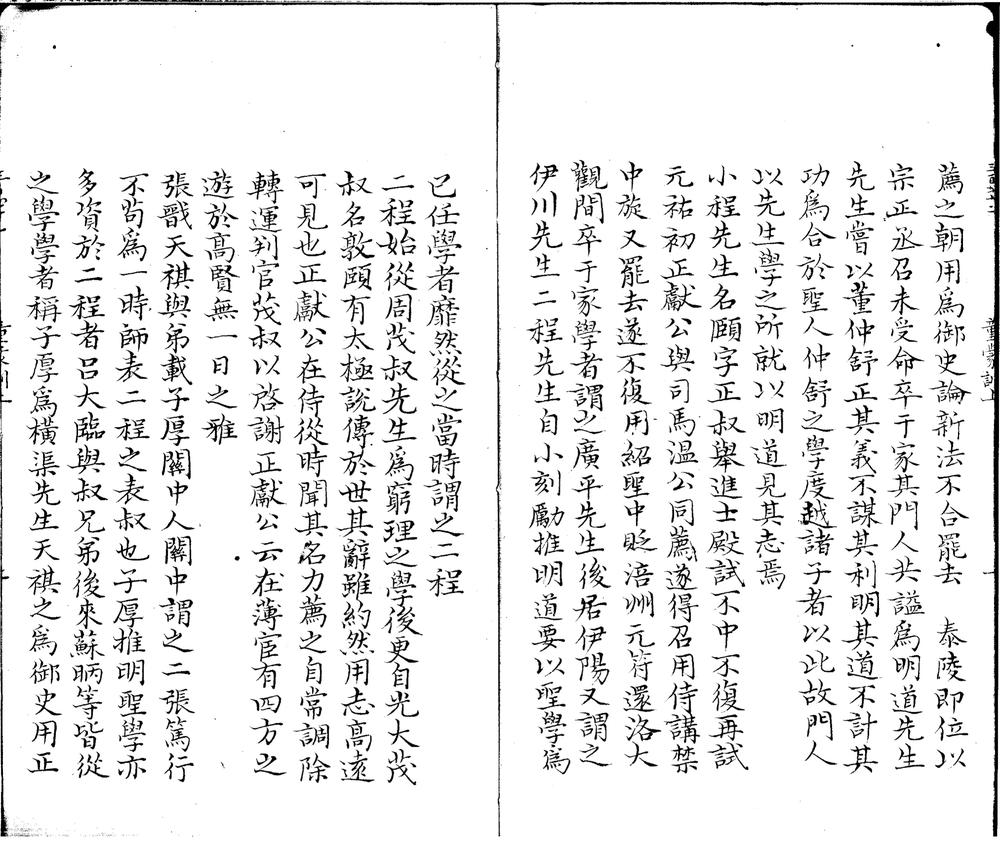 薦之朝用爲御史論新法不合罷去　泰陵即位以
宗正丞召未受命卒于家其門人共謚爲明道先生
先生嘗以董仲舒正其義不謀其利明其道不計其
功爲合於聖人仲舒之學度越諸子者以此故門人
以先生學之所就以明道見其志焉
小程先生名頤字正叔舉進士殿試不中不復再試
元祐初正獻公與司馬温公同薦遂得召用侍講禁
中旋又罷去遂不復用紹聖中貶涪州元符還洛大
觀間卒于家學者謂之廣平先生後居伊陽又謂之
伊川先生二程先生自小刻勵推明道要以聖學爲
已任學者靡然從之當時謂之二程
二程始從周茂叔先生爲窮理之學後更自光大茂
叔名敦頤有太極說傳於世其辭雖約然用志高遠
可見也正獻公在侍從時聞其名力薦之自常調除
轉運判官茂叔以啓謝正獻公云在薄宦有四方之
遊於高賢無一日之雅
張戩天祺與弟載子厚關中人關中謂之二張篤行
不苟爲一時師表二程之表叔也子厚推明聖學亦
多資於二程者呂大臨與叔兄弟後來蘇昞等皆從
之學學者稱子厚爲橫渠先生天祺之爲御史用正